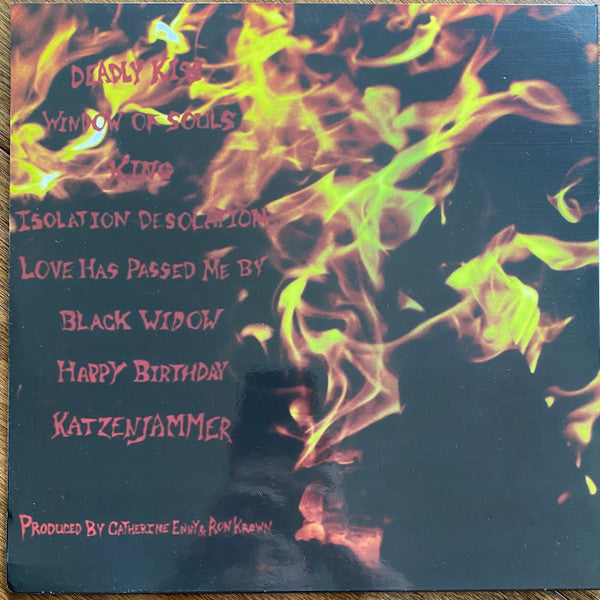 DEADLY KISS
WINDOW OF SOULS
KING
ISOLATION DESOLATION
LOVE HAS PASSED ME BY
BLACK WIDOW
HAPPY BIRTHDAY
KATZENJAMMER
PRODUCED BY CATHERINE ENNY & RON KROWN